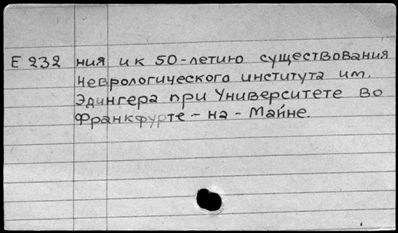 Е 232 ния и к 50-летию существования
Неврологического института им.
Эдингера при Университете во
Франкфурте-на-Майне.